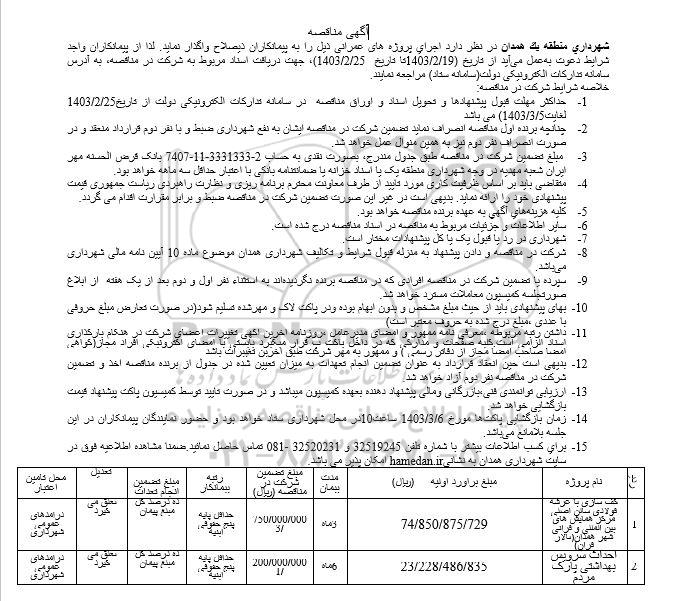 آگهی مناقصه
شهرداري منطقه يك همدان در نظر دارد اجراي پروژه های عمرانی ذیل را به پیمانکاران ذیصلاح واگذار نماید. لذا از پیمانکاران واجد
شرایط دعوت به‌عمل می‌آید از تاریخ (1403/2/19تا تاریخ 1403/2/25)، جهت دریافت اسناد مربوط به شرکت در مناقصه، به آدرس
سامانه تدارکات الکترونیکی دولت(سامانه ستاد) مراجعه نمایند.
خلاصه شرایط شرکت در مناقصه:
1- حداکثر مهلت قبول پیشنهادها و تحویل اسناد و اوراق مناقصه در سامانه تدارکات الکترونیکی دولت از تاریخ1403/2/25
لغایت1403/3/5) می باشد
2- چنانچه برنده اول مناقصه انصراف نماید تضمین شرکت در مناقصه ایشان به نفع شهرداری ضبط و با نفر دوم قرارداد منعقد و در
صورت انصراف نفر دوم نیز به همین منوال عمل خواهد شد.
3- مبلغ تضمین شرکت در مناقصه طبق جدول مندرج، بصورت نقدی به حساب 2-3331333-11-7407 بانک قرض الحسنه مهر
ایران شعبه مهدیه در وجه شهرداری منطقه یک یا اسناد خزانه یا ضمانتنامه بانکی با اعتبار حداقل سه ماهه خواهد بود.
4- متقاضی باید بر اساس ظرفیت کاری مورد تایید از طرف معاونت محترم برنامه ریزی و نظارت راهبردی ریاست جمهوری قیمت
پیشنهادی خود را ارائه نماید. بدیهی است در غیر این صورت تضمین شرکت در مناقصه ضبط و برابر مقررات اقدام می گردد.
5- کلیه هزینه‌های آگهی به عهده برنده مناقصه خواهد بود.
6- سایر اطلاعات و جزئیات مربوط به مناقصه در اسناد مناقصه درج شده است.
7- شهرداری در رد یا قبول یک یا کل پیشنهادات مختار است.
8- شرکت در مناقصه و دادن پیشنهاد به منزله قبول شرایط و تکالیف شهرداری همدان موضوع ماده 10 آیین نامه مالی شهرداری
می‌باشد.
9- سپرده یا تضمین شرکت در مناقصه افرادی که در مناقصه برنده نگردیده‌اند به استثناء نفر اول و دوم بعد از یک هفته از ابلاغ
صورتجلسه کمیسیون معاملات مسترد خواهد شد.
10- بهای پیشنهادی باید از حیث مبلغ مشخص و بدون ابهام بوده ودر پاکت لاک و مهرشده تسلیم شود(در صورت تعارض مبلغ حروفی
با عددی ،مبلغ درج شده به حروف معتبر است)
11- داشتن رتبه مربوطه ،معرفی نامه ممهور و امضای مدیرعامل ،روزنامه اخرین آگهی تغییرات اعضای شرکت در هنگام بارگذاری
اسناد الزامی است.کلیه صفحات و مدارکی که در داخل پاکت ب قرار میگیرد بایستی با امضای الکترونیکی افراد مجاز(گواهی
امضا صاحب امضا مجاز از دفاتر رسمی ) و ممهور به مهر شرکت طبق آخرین تغییرات باشد
12- بدیهی است حین انعقاد قرارداد به عنوان تضمین انجام تعهدات به میزان تعیین شده در جدول از برنده مناقصه اخذ و تضمین
شرکت در مناقصه نفر دوم آزاد خواهد شد.
13- ارزیابی توانمندی فنی،بازرگانی ومالی پیشنهاد دهنده بعهده کمیسیون میباشد و در صورت تایید توسط کمیسیون پاکت پیشنهاد قیمت
بازگشایی خواهد شد.
14- زمان بازگشایی پاکت‌ها مورخ 1403/3/6 ساعت10در محل شهرداری ستاد خواهد بود و حضور نمایندگان پیمانکاران در این
جلسه بلامانع می‌باشد.
15- برای کسب اطلاعات بیشتر با شماره تلفن 32519245 و 32520231 -081 تماس حاصل نمائید.ضمنا مشاهده اطلاعیه فوق در
سایت شهرداری همدان به نشانیhamedan.ir امکان پذیر می باشد.
نام پروژه مبلغ براورد اولیه (ریال) مدت پیمان مبلغ تضمین شرکت در مناقصه (ریال) رتبه پیمانکار مبلغ تضمین انجام تعدات تعدیل محل تامین اعتبار
1 کف سازی با عرشه فولادی سالن اصلی مرکز همایش های بین المللی و قرآنی شهر همدان(تالار قرآن) 74/850/875/729 3ماه 750/000/000 3/ حداقل پایه پنج حقوقی ابنیه ده درصد کل مبلغ پیمان تعلق می گیرد درآمدهای عمومی شهرداری
2 احداث سرویس بهداشتی پارک مردم 23/228/486/835 6ماه 200/000/000 1/ حداقل پایه پنج حقوقی ابنیه ده درصد کل مبلغ پیمان تعلق می گیرد درآمدهای عمومی شهرداری